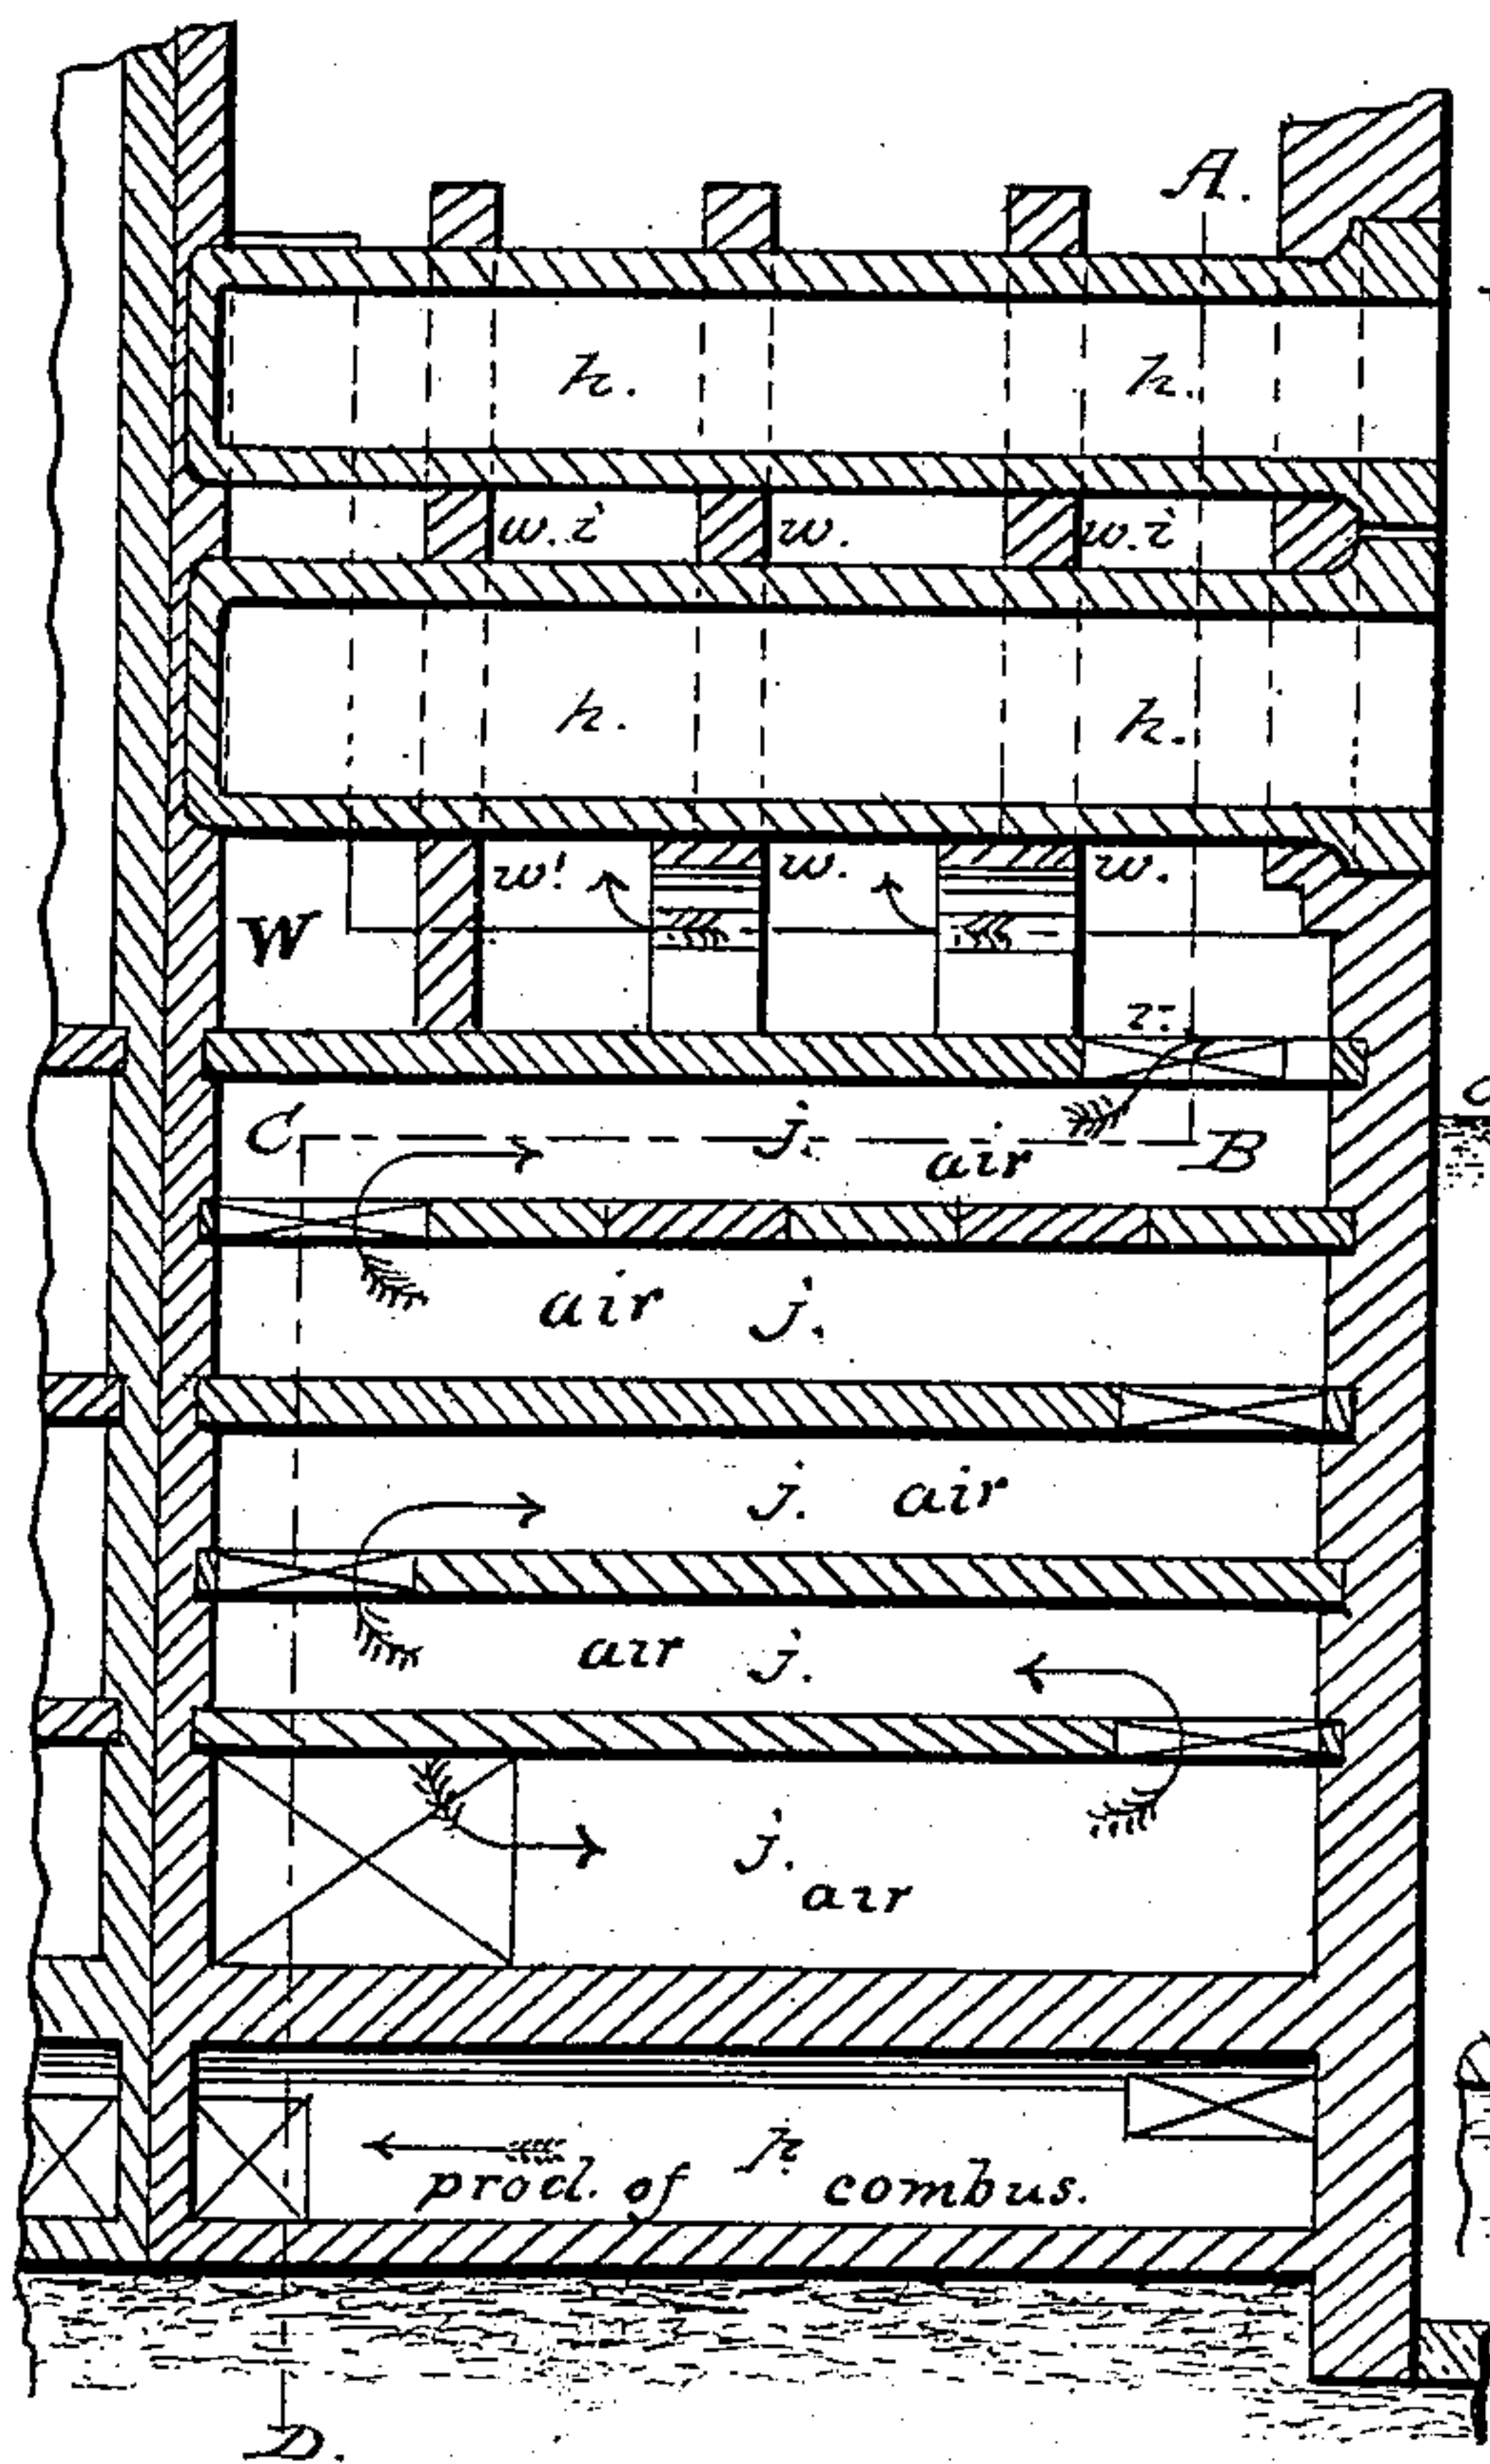 A.
h. h.
w.i w. w.i
h. h.
w! w. w.
W
v.
C j. B
air
air j.
j. air
air j.
j.
air
h
prod. of combus.
D.